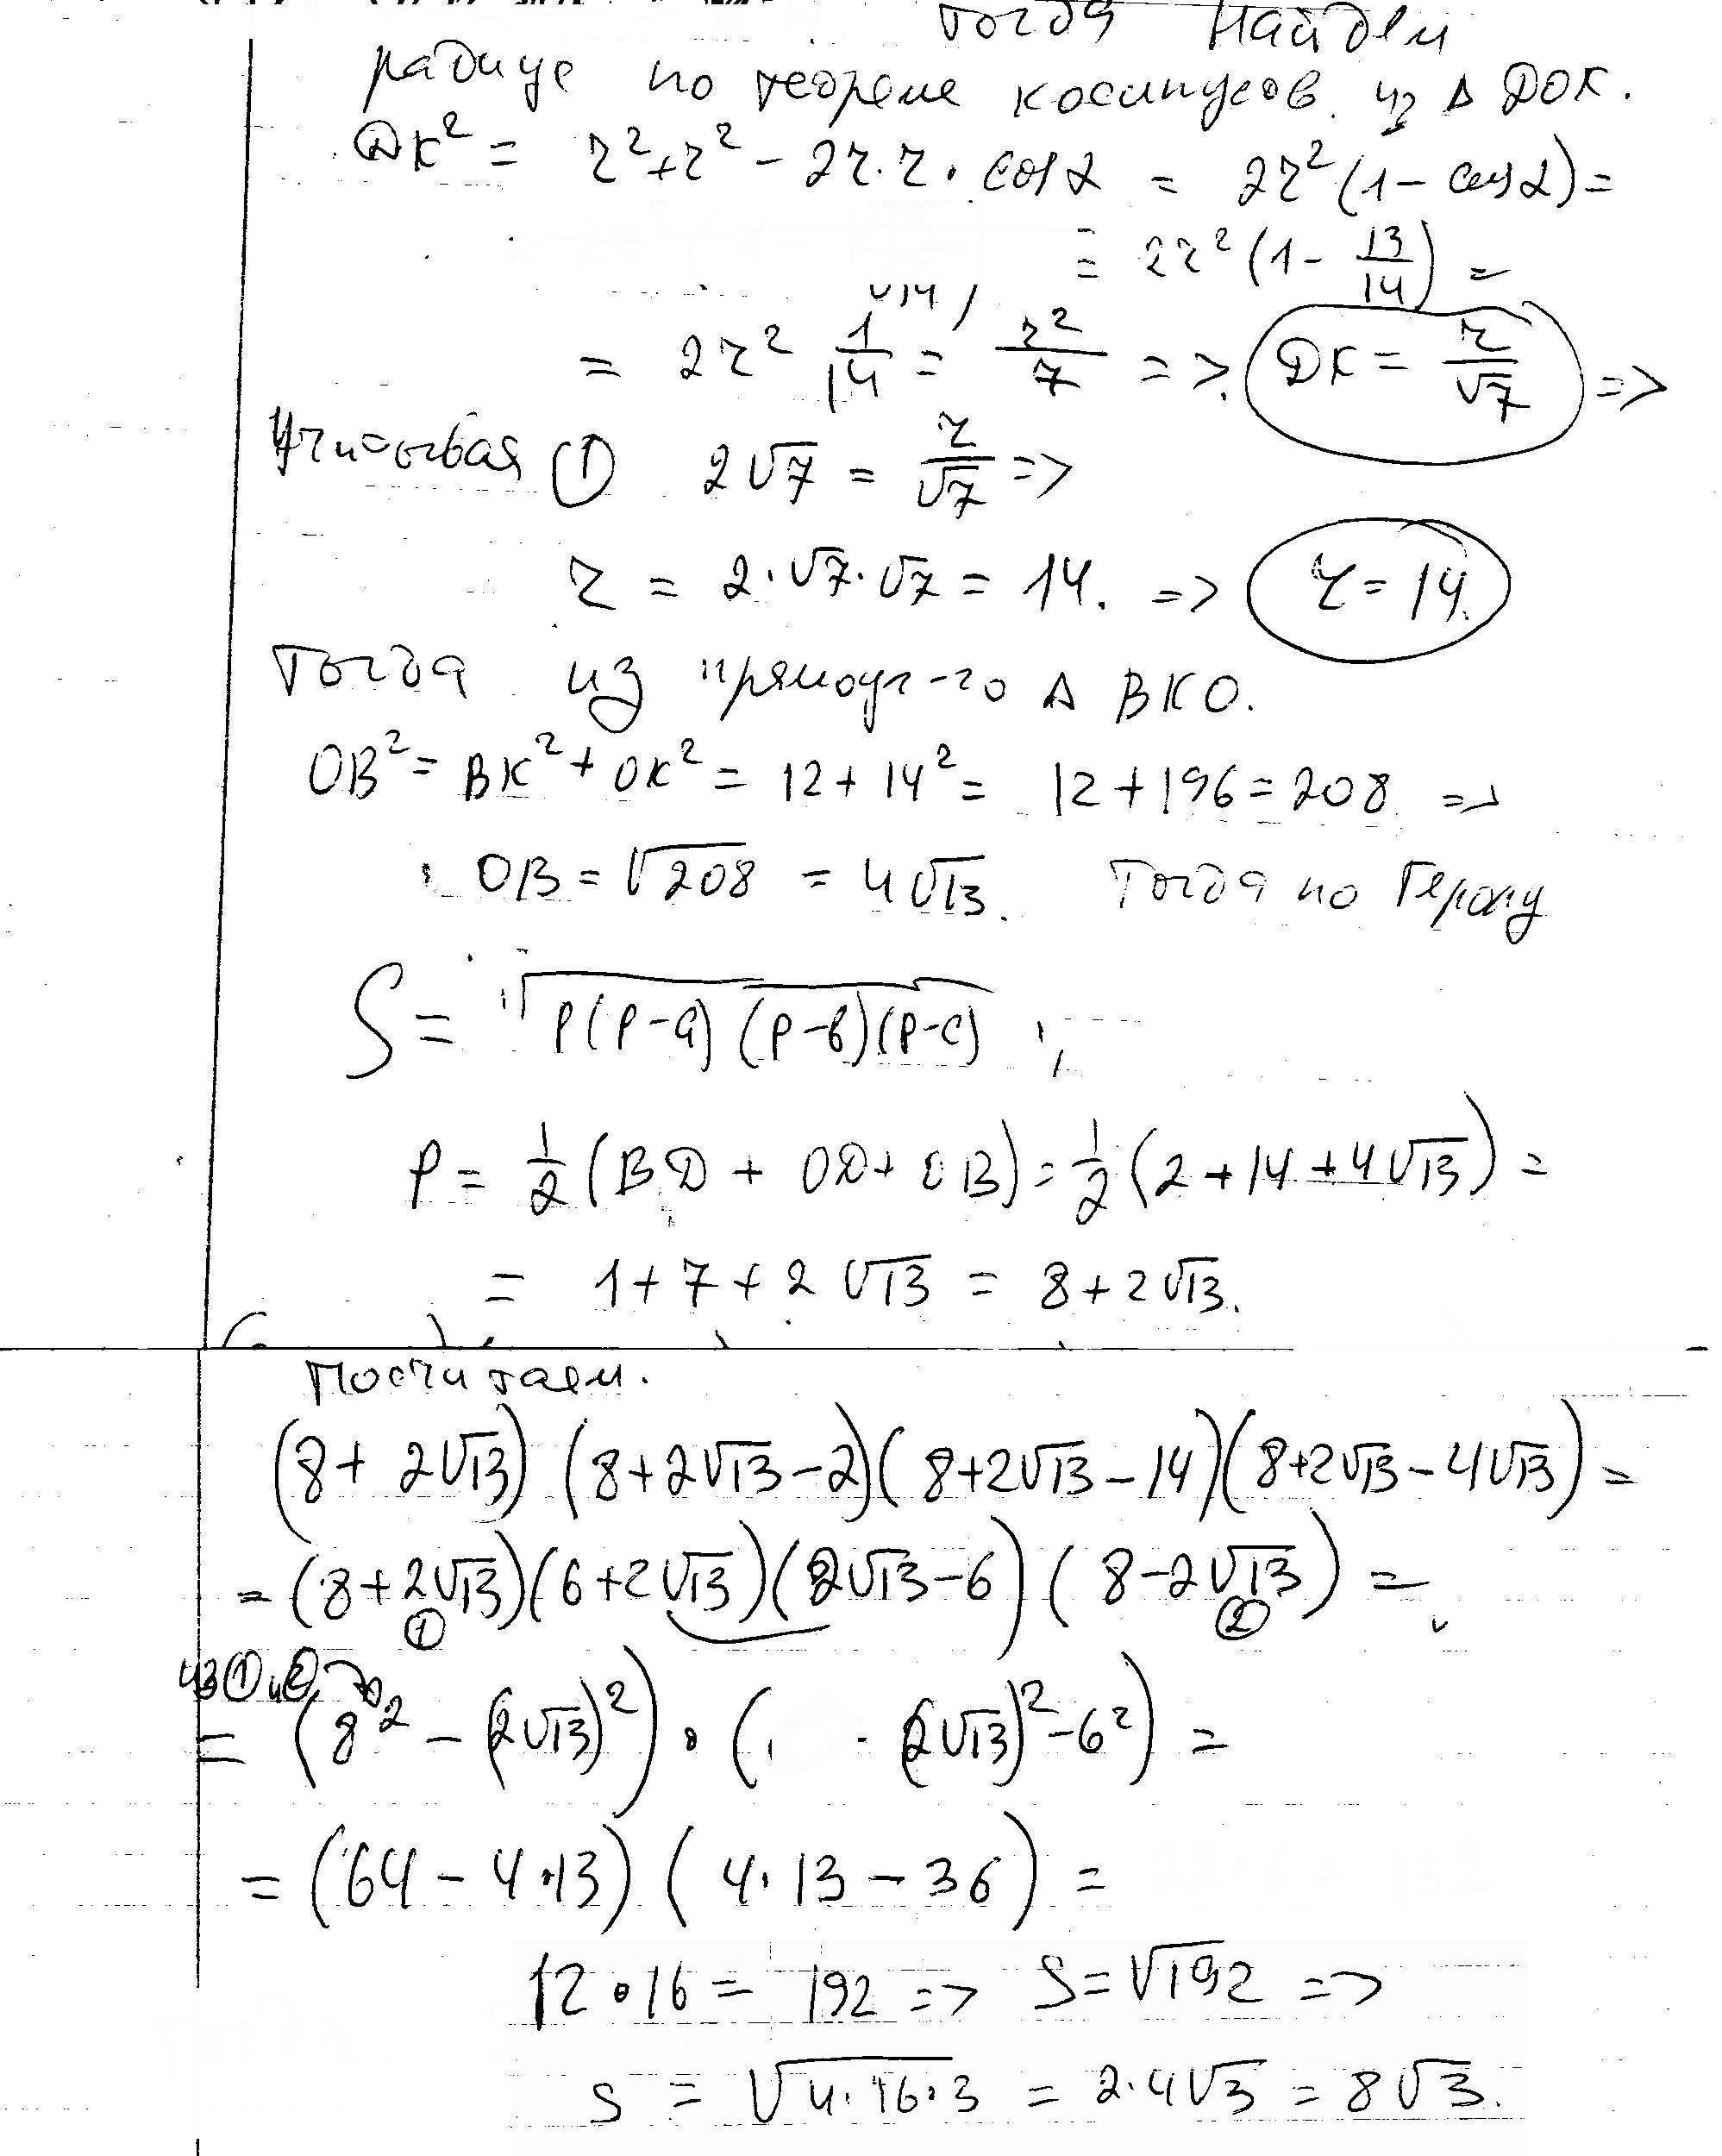 тогда найдём
радиус по теореме косинусов из Δ ДОК.
ДК² = r² + r² - 2r·r·cosα = 2r²(1 - cosα) =
= 2r²(1 - 13/14) =
= 2r² 1/14 = r²/7 => ДК = r/√7 =>
Учитывая ① 2√7 = r/√7 =>
r = 2·√7·√7 = 14. => r = 14.
Тогда из прямоуг-го Δ ВКО.
ОВ² = ВК² + ОК² = 12 + 14² = 12 + 196 = 208 =>
ОВ = √208 = 4√13. Тогда по Герону
S = √p(p-a)(p-b)(p-c) ;
P = 1/2 (ВД + ОД + ОВ) = 1/2 (2 + 14 + 4√13) =
= 1 + 7 + 2√13 = 8 + 2√13.
Посчитаем.
(8 + 2√13)(8 + 2√13 - 2)(8 + 2√13 - 14)(8 + 2√13 - 4√13) =
= (8 + 2√13)(6 + 2√13)(2√13 - 6)(8 - 2√13) =
① ②
из ① и ②
= (8² - (2√13)²)·((2√13)² - 6²) =
= (64 - 4·13)(4·13 - 36) =
12·16 = 192 => S = √192 =>
S = √4·16·3 = 2·4√3 = 8√3.